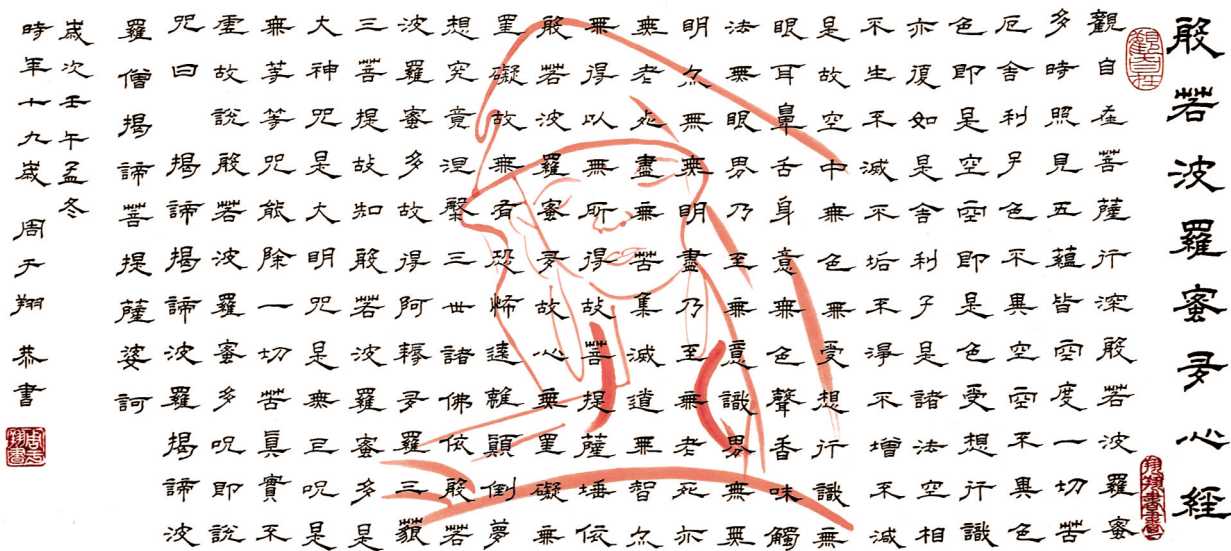 般若波羅蜜多心經
觀自在菩薩行深般若波羅蜜
多時照見五蘊皆空度一切苦
厄舍利子色不異空空不異色
色即是空空即是色受想行識
亦復如是舍利子是諸法空相
不生不滅不垢不淨不增不減
是故空中無色無受想行識無
眼耳鼻舌身意無色聲香味觸
法無眼界乃至無意識界無無
明亦無無明盡乃至無老死亦
無老死盡無苦集滅道無智亦
無得以無所得故菩提薩埵依
般若波羅蜜多故心無罣礙無
罣礙故無有恐怖遠離顛倒夢
想究竟涅槃三世諸佛依般若
波羅蜜多故得阿耨多羅三藐
三菩提故知般若波羅蜜多是
大神咒是大明咒是無上呪是
無等等咒能除一切苦真實不
虛故說般若波羅蜜多呪即說
咒曰 揭諦揭諦波羅揭諦波
羅僧揭諦菩提薩婆訶
歲次壬午孟冬
時年十九歲 周于翔 恭書